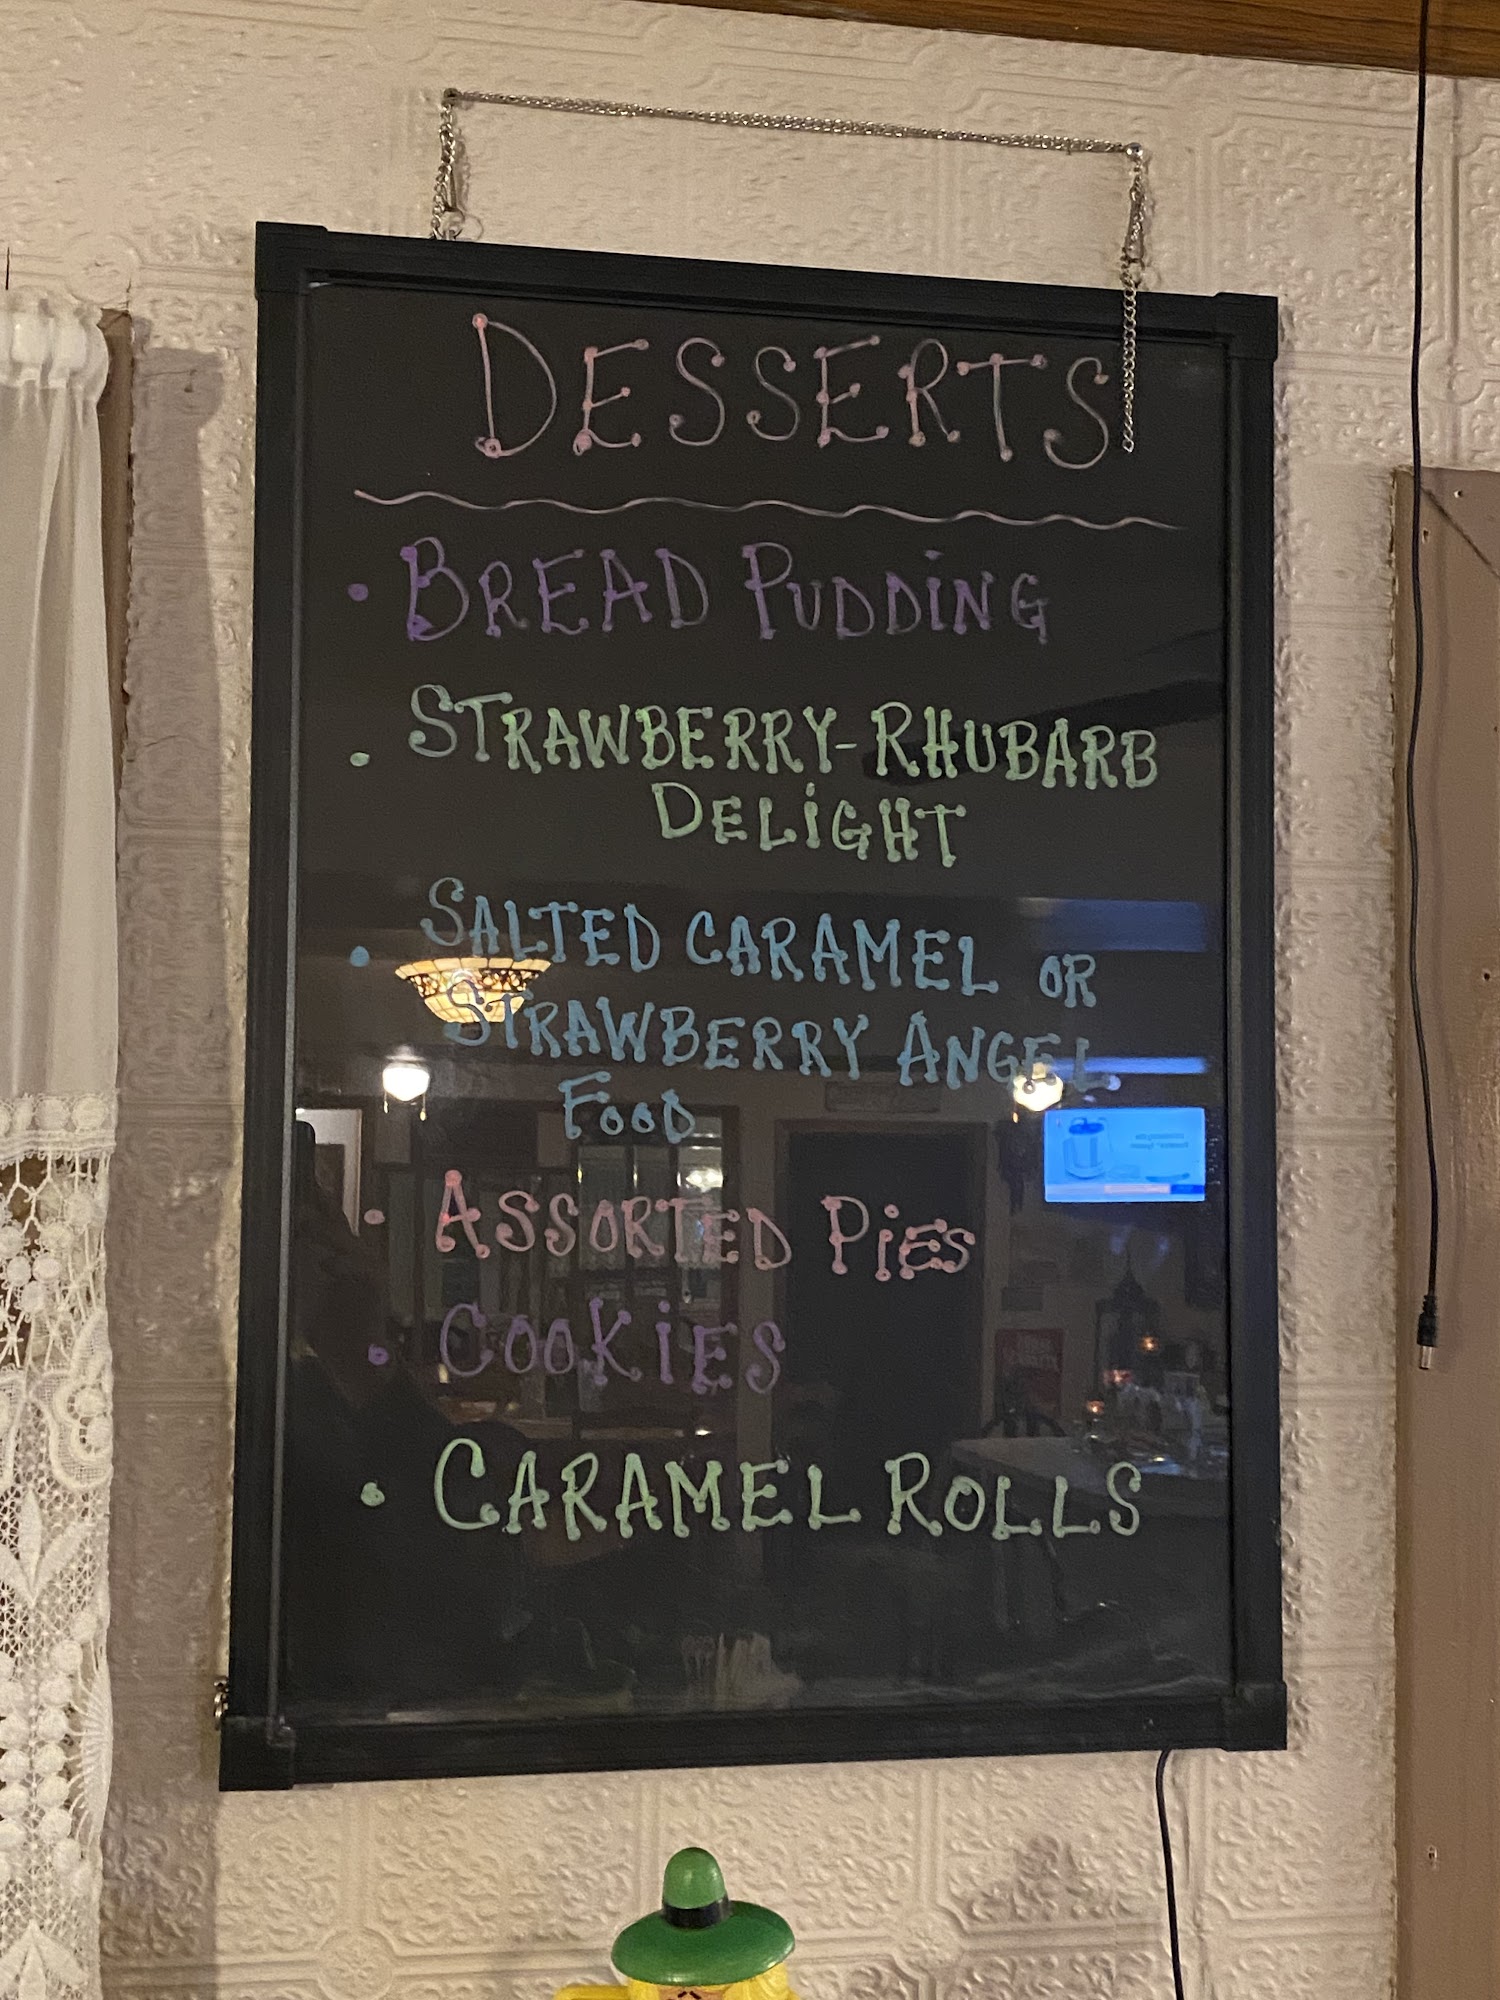 DESSERTS
• BREAD PUDDING
• STRAWBERRY-RHUBARB
DELIGHT
• SALTED CARAMEL OR
STRAWBERRY ANGEL
FOOD
• ASSORTED PIES
• COOKIES
• CARAMEL ROLLS